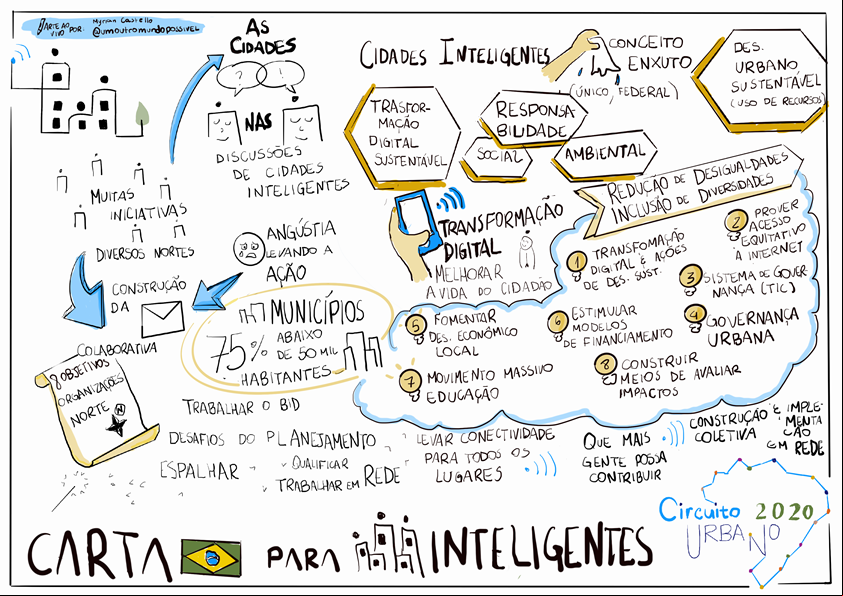 ARTE AO
VIVO POR:
Myrian Castello
@umoutromundopossivel
AS
CIDADES
?
!
NAS
DISCUSSÕES
DE CIDADES
INTELIGENTES
MUITAS
INICIATIVAS
DIVERSOS NORTES
CONSTRUÇÃO
DA
COLABORATIVA
ANGÚSTIA
LEVANDO A
AÇÃO
8 OBJETIVOS
ORGANIZAÇÕES
NORTE
N
MUNICÍPIOS
75% ABAIXO
DE 50 MIL
HABITANTES
TRABALHAR O BID
DESAFIOS DO PLANEJAMENTO
ESPALHAR
QUALIFICAR
TRABALHAR EM REDE
CIDADES INTELIGENTES
CONCEITO
ENXUTO
(ÚNICO, FEDERAL)
DES.
URBANO
SUSTENTÁVEL
(USO DE RECURSOS)
TRASFOR-
MAÇÃO
DIGITAL
SUSTENTÁVEL
RESPONSA-
BILIDADE
SOCIAL
AMBIENTAL
REDUÇÃO DE DESIGUALDADES
INCLUSÃO DE DIVERSIDADES
TRANSFORMAÇÃO
DIGITAL
MELHORAR
A VIDA DO CIDADÃO
1 TRANSFOMAÇÃO
DIGITAL E AÇÕES
DE DES. SUST.
2 PROVER
ACESSO
EQUITATIVO
À INTERNET
3 SISTEMA DE GOVER-
NANÇA (TIC)
4 GOVERNANÇA
URBANA
5 FOMENTAR
DES. ECONÔMICO
LOCAL
6 ESTIMULAR
MODELOS
DE FINANCIAMENTO
7 MOVIMENTO MASSIVO
EDUCAÇÃO
8 CONSTRUIR
MEIOS DE AVALIAR
IMPACTOS
LEVAR CONECTIVIDADE
PARA TODOS OS
LUGARES
QUE MAIS
GENTE POSSA
CONTRIBUIR
CONSTRUÇÃO E IMPLE-
COLETIVA MENTA
CÃO
EM REDE
CARTA PARA INTELIGENTES
Circuito 2020
URBANO